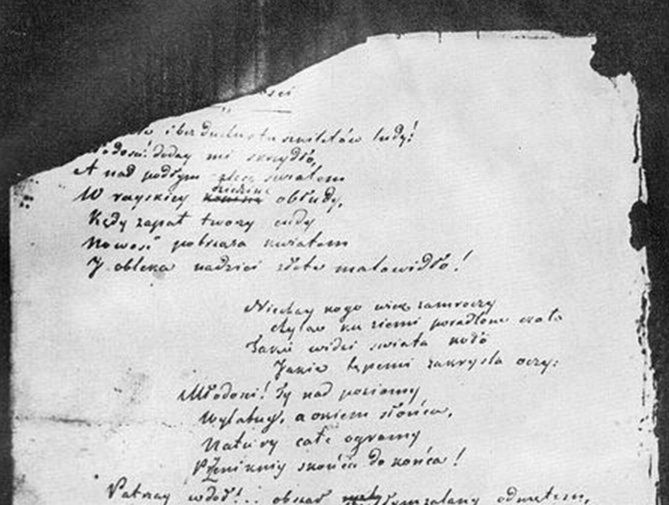 ści
i bez ducha to szkieletów ludy!
łodości! doday mi skrzydło,
A nad podłym zlecę światem
W rayskiey dziedzinę obłudy,
Kędy zapał tworzy cudy
Nowość potrząsa kwiatem
I obleka nadziei złote malowidło!
Niechay kogo wiek zamroczy
Chyląc ku ziemi poradlone czoło
Takie widzi świata koło
Jakie tępemi zakryśla oczy:
Młodości! Ty nad poziomy
Wylatuy, a okiem słońca,
Natury całe ogromy
Przenikniy z końca do końca!
Patrzay w dół!.. obszar zalany odmętem,